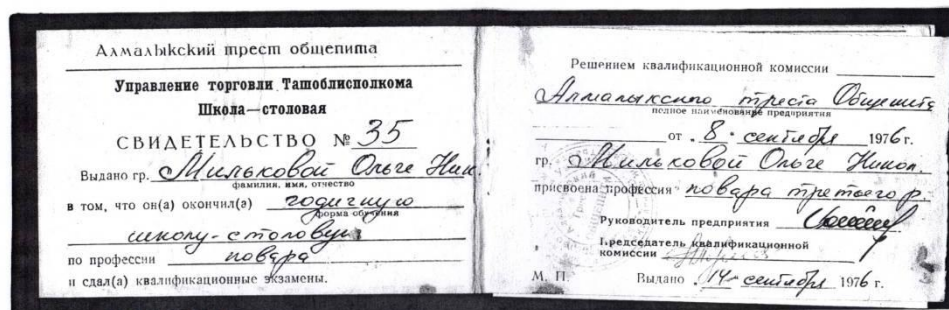 Алмалыкский трест общепита
Управление торговли Ташоблисполкома
Школа—столовая
СВИДЕТЕЛЬСТВО № 35
Выдано гр. Мильковой Ольге Ник.
фамилия, имя, отчество
в том, что он(а) окончил(а) годичную
форма обучения
школу-столовую
по профессии повара
и сдал(а) квалификационные экзамены.
Решением квалификационной комиссии
Алмалыкского треста Общепита
полное наименование предприятия
от 8 сентября 1976 г.
гр. Мильковой Ольге Никол.
присвоена профессия повара третьего р.
Руководитель предприятия
Председатель квалификационной
комиссии
М. П. Выдано 14 сентября 1976 г.